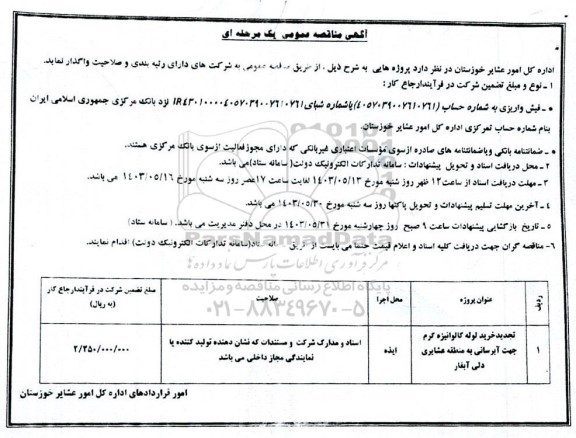 آگهی مناقصه عمومی یک مرحله ای
اداره کل امور عشایر خوزستان در نظر دارد پروژه هایی به شرح ذیل ، از طریق مناقصه عمومی به شرکت های دارای رتبه بندی و صلاحیت واگذار نماید.
۱ - نوع و مبلغ تضمین شرکت در فرآیندارجاع کار :
• - فیش واریزی به شماره حساب (۴۰۵۷۰۳۹۰۰۷۶۱۰۷۶۱) یاشماره شبای IR۴۳۰۱۰۰۰۰۴۰۵۷۰۳۹۰۰۷۶۱۰۷۶۱ نزد بانک مرکزی جمهوری اسلامی ایران
بنام شماره حساب تمرکزی اداره کل امور عشایر خوزستان.
• - ضمانتنامه بانکی ویاضمانتنامه های صادره ازسوی مؤسسات اعتباری غیربانکی که دارای مجوزفعالیت ازسوی بانک مرکزی هستند.
۲ - محل دریافت اسناد و تحویل پیشنهادات : سامانه تدارکات الکترونیک دولت( سامانه ستاد)می باشد.
۳ - مهلت دریافت اسناد از ساعت۱۲ ظهر روز شنبه مورخ ۱۴۰۳/۰۵/۱۳ لغایت ساعت ۱۷عصر روز سه شنبه مورخ ۱۴۰۳/۰۵/۱۶ می باشد.
۴ - آخرین مهلت تسلیم پیشنهادات و تحویل پاکتها روز سه شنبه مورخ ۱۴۰۳/۰۵/۳۰ می باشد.
۵ - تاریخ بازگشایی پیشنهادات ساعت ۹ صبح روز چهارشنبه مورخ ۱۴۰۳/۰۵/۳۱ در محل دفتر مدیریت می باشد. ( سامانه ستاد)
۶- مناقصه گران جهت دریافت کلیه اسناد و اعلام قیمت حتما می بایست از طریق سامانه ستاد(سامانه تدارکات الکترونیک دولت) اقدام نمایند.
ParsNamadData
مرکز فرآوری اطلاعات پارس نماد داده ها
پایگاه اطلاع رسانی مناقصه و مزایده
۰۲۱-۸۸۳۴۹۶۷۰-۵
ردیف عنوان پروژه محل اجرا صلاحیت مبلغ تضمین شرکت در فرآیندارجاع کار (به ریال)
۱ تجدیدخرید لوله گالوانیزه گرم جهت آبرسانی به منطقه عشایری دلی آبفار ایذه اسناد و مدارک شرکت و مستندات که نشان دهنده تولید کننده یا نمایندگی مجاز داخلی می باشد ۲/۳۵۰/۰۰۰/۰۰۰
امور قراردادهای اداره کل امور عشایر خوزستان